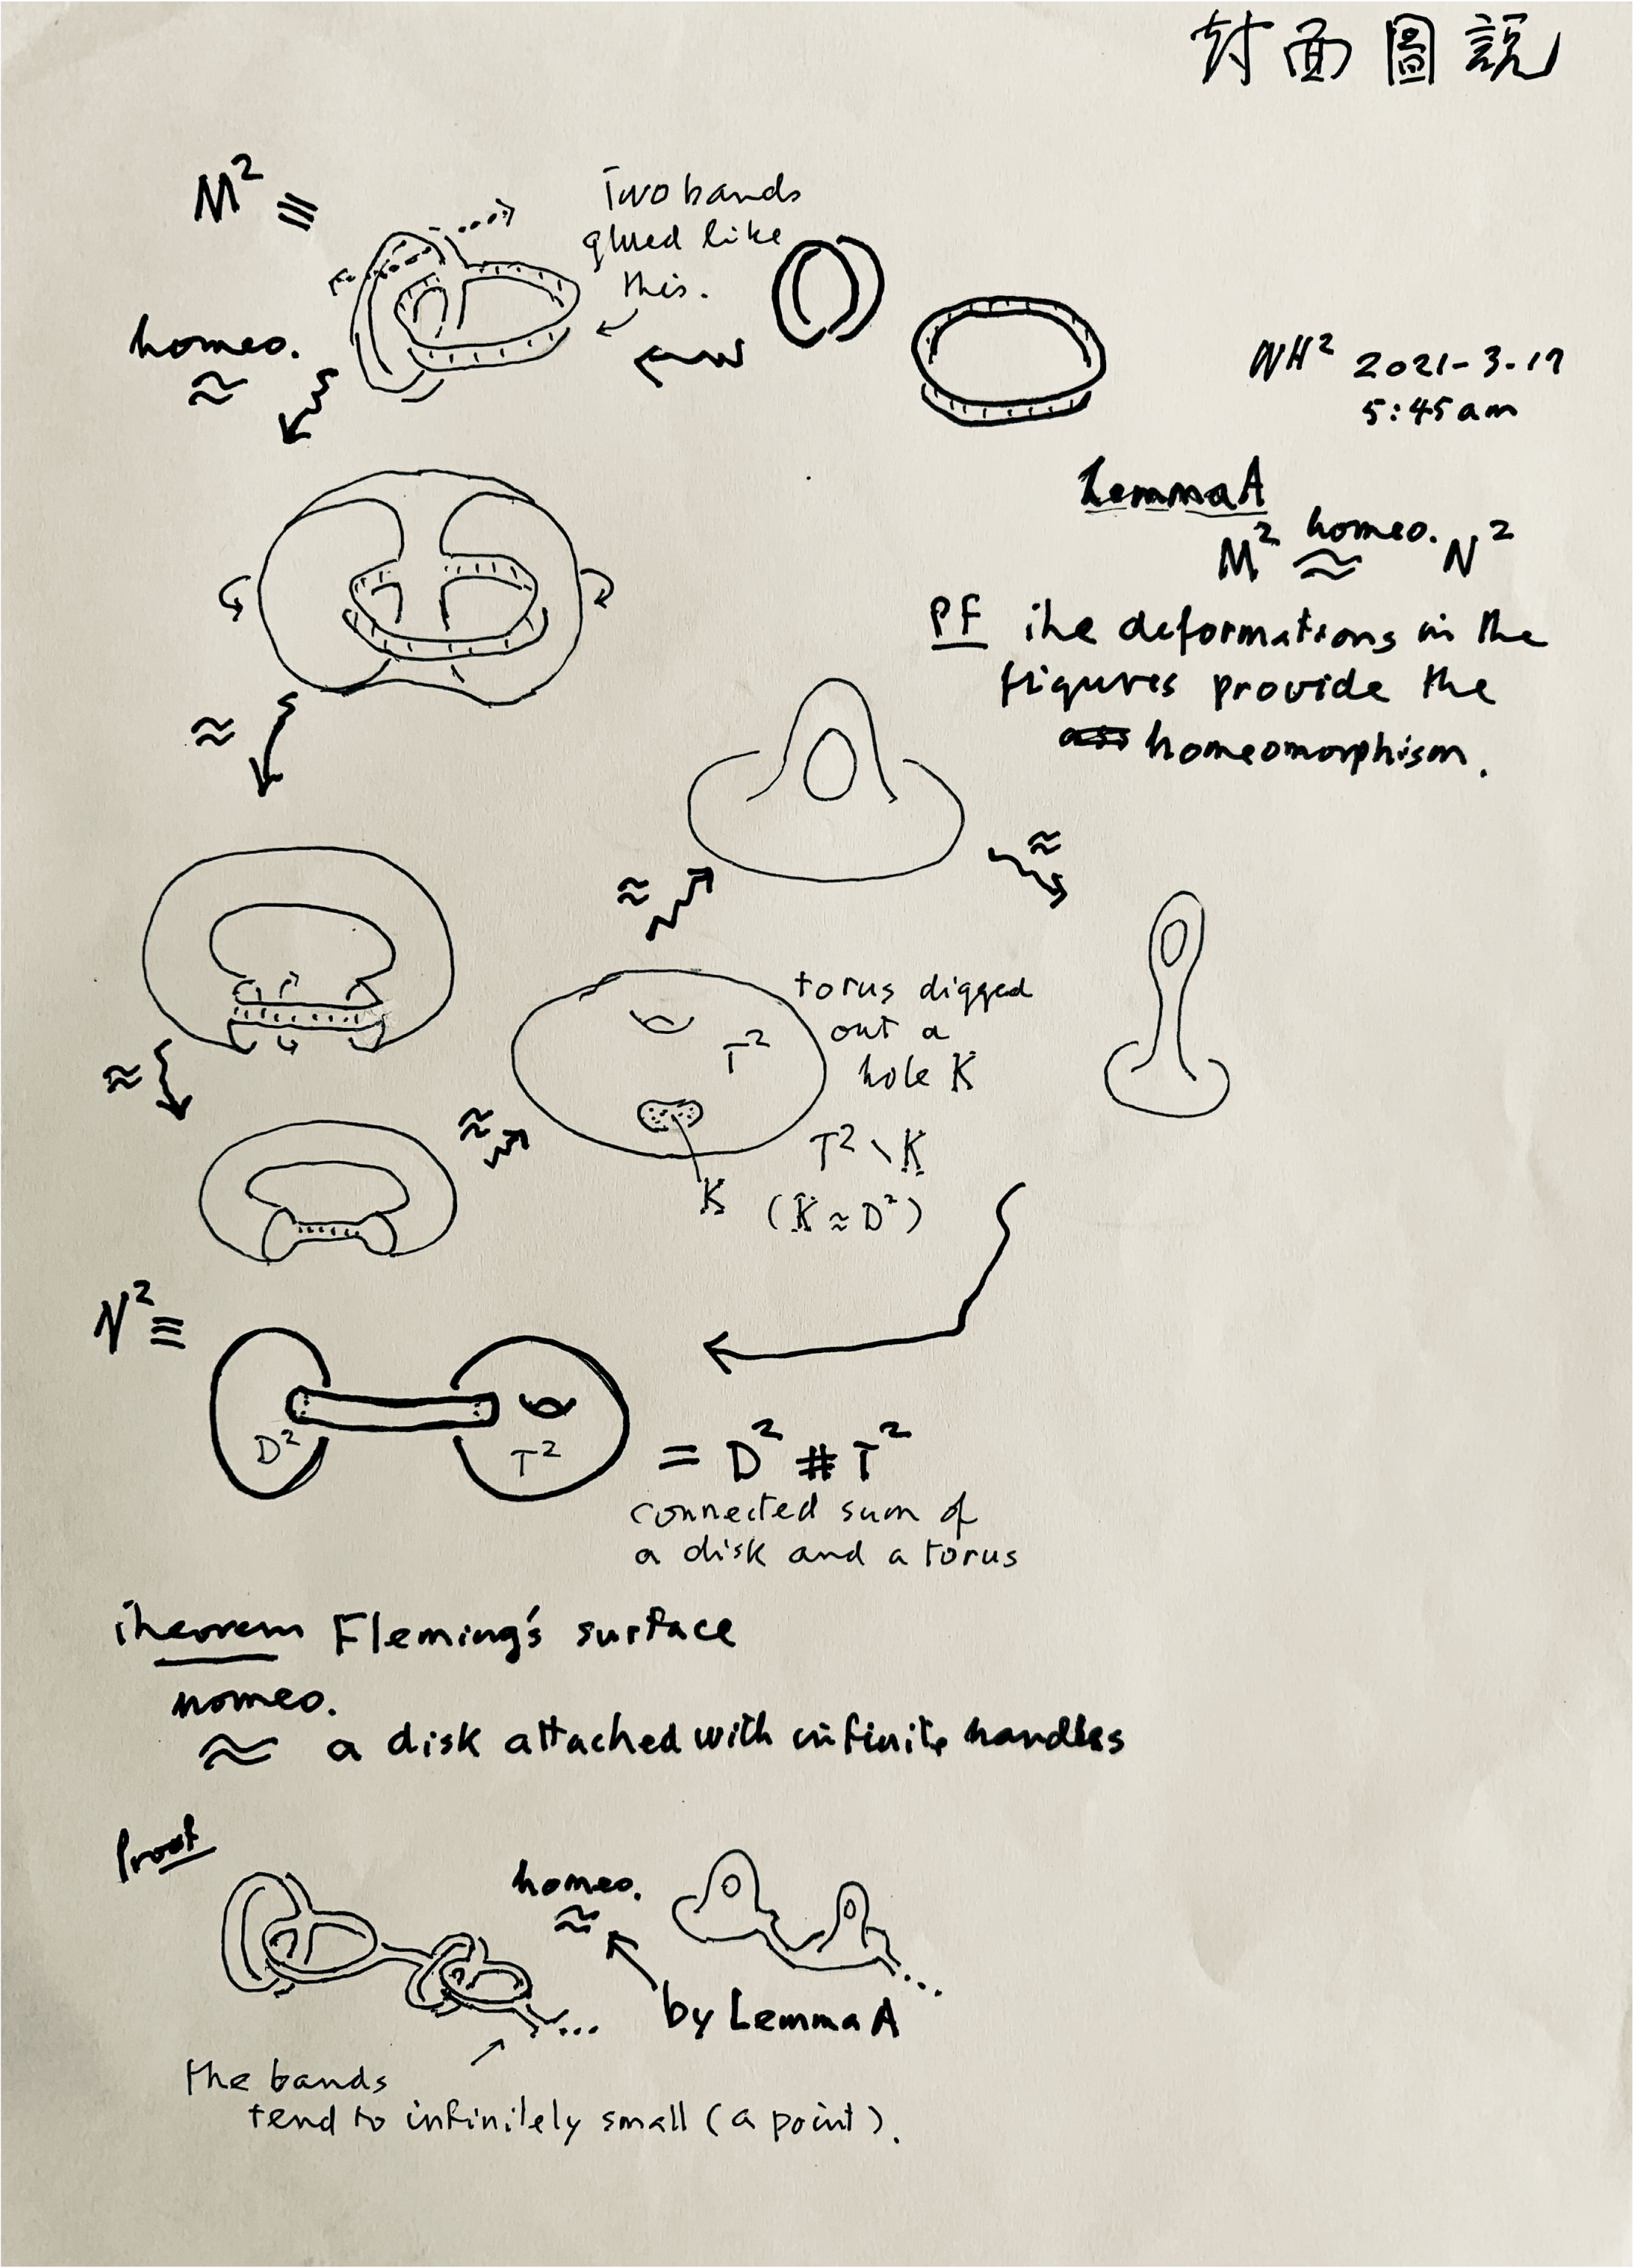 封面圖説
M² ≡
Two bands
glued like
this.
homeo.
≈
NH² 2021-3-17
5:45am
Lemma A
M² homeo. ≈ N²
PF The deformations in the
figures provide the
homeomorphism.
≈
≈
≈
≈
≈
torus digged
out a
hole K
T²
T² \ K
K (K ≈ D²)
N² ≡
D² T² = D² # T²
connected sum of
a disk and a torus
Theorem Fleming's surface
homeo.
≈ a disk attached with infinite handles
Proof
homeo.
≈
...
...
by Lemma A
the bands
tend to infinitely small (a point).